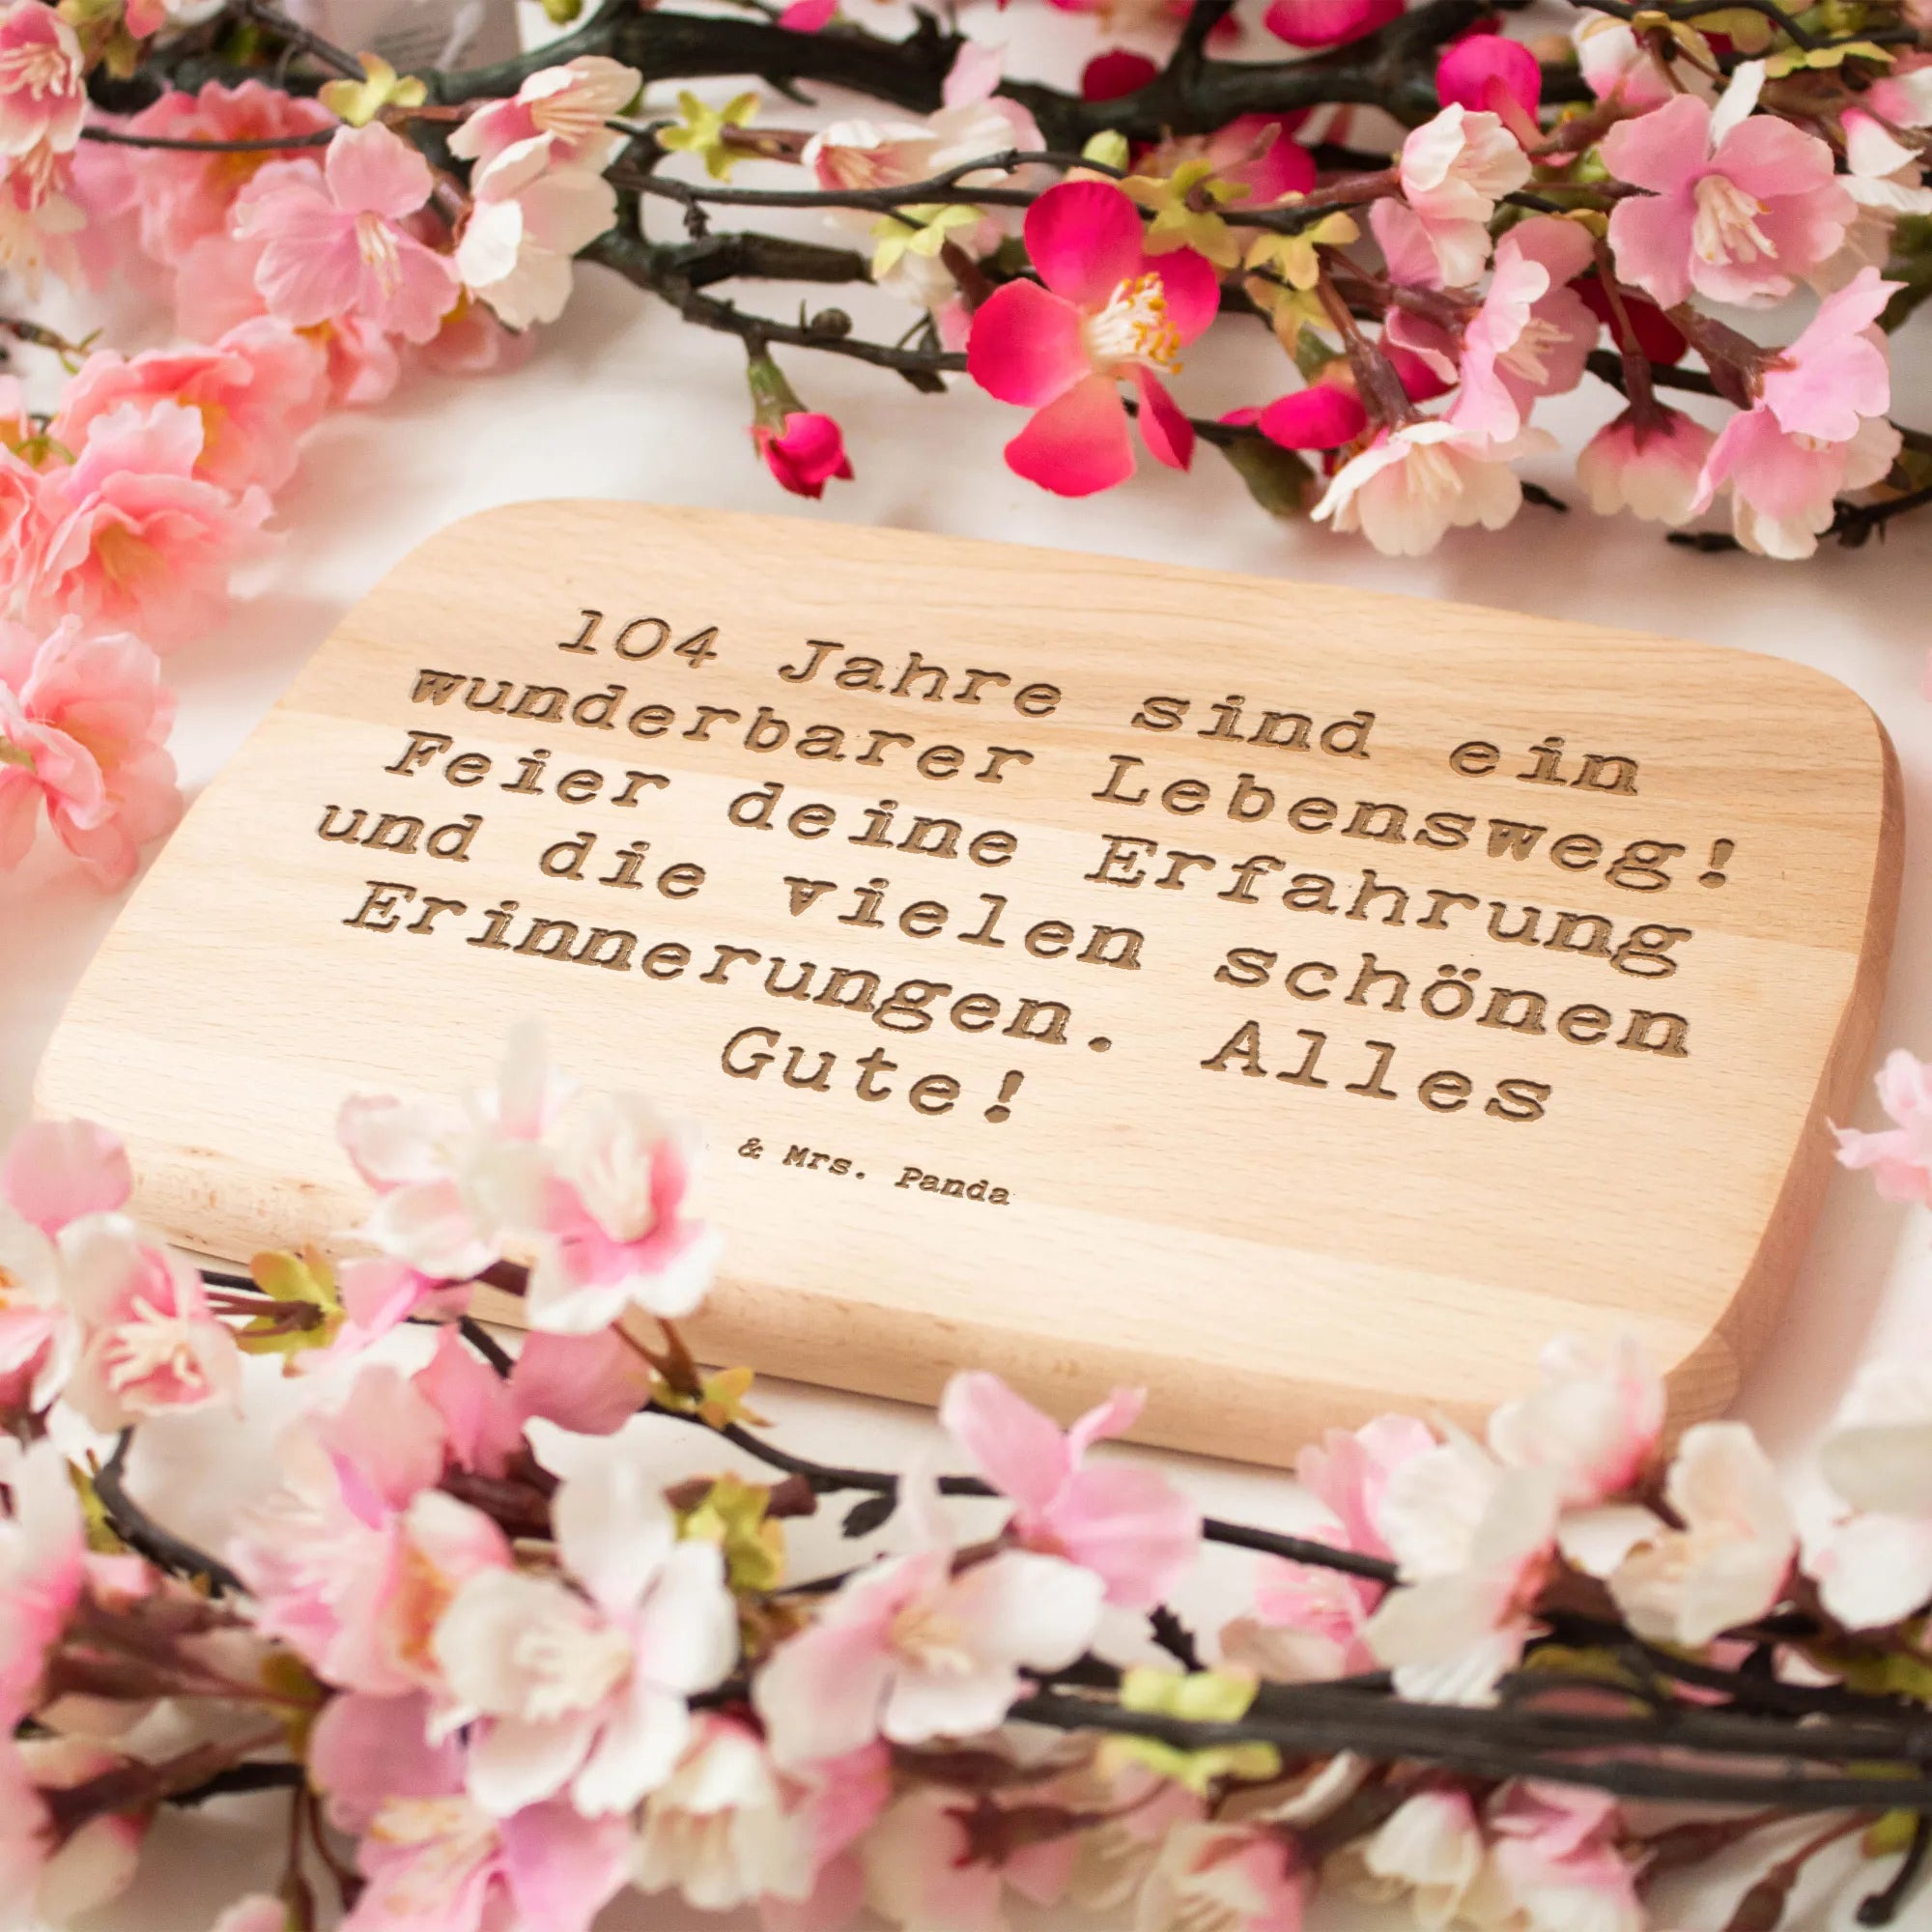 104 Jahre sind ein
wunderbarer Lebensweg!
Feier deine Erfahrung
und die vielen schönen
Erinnerungen. Alles
Gute!
& Mrs. Panda